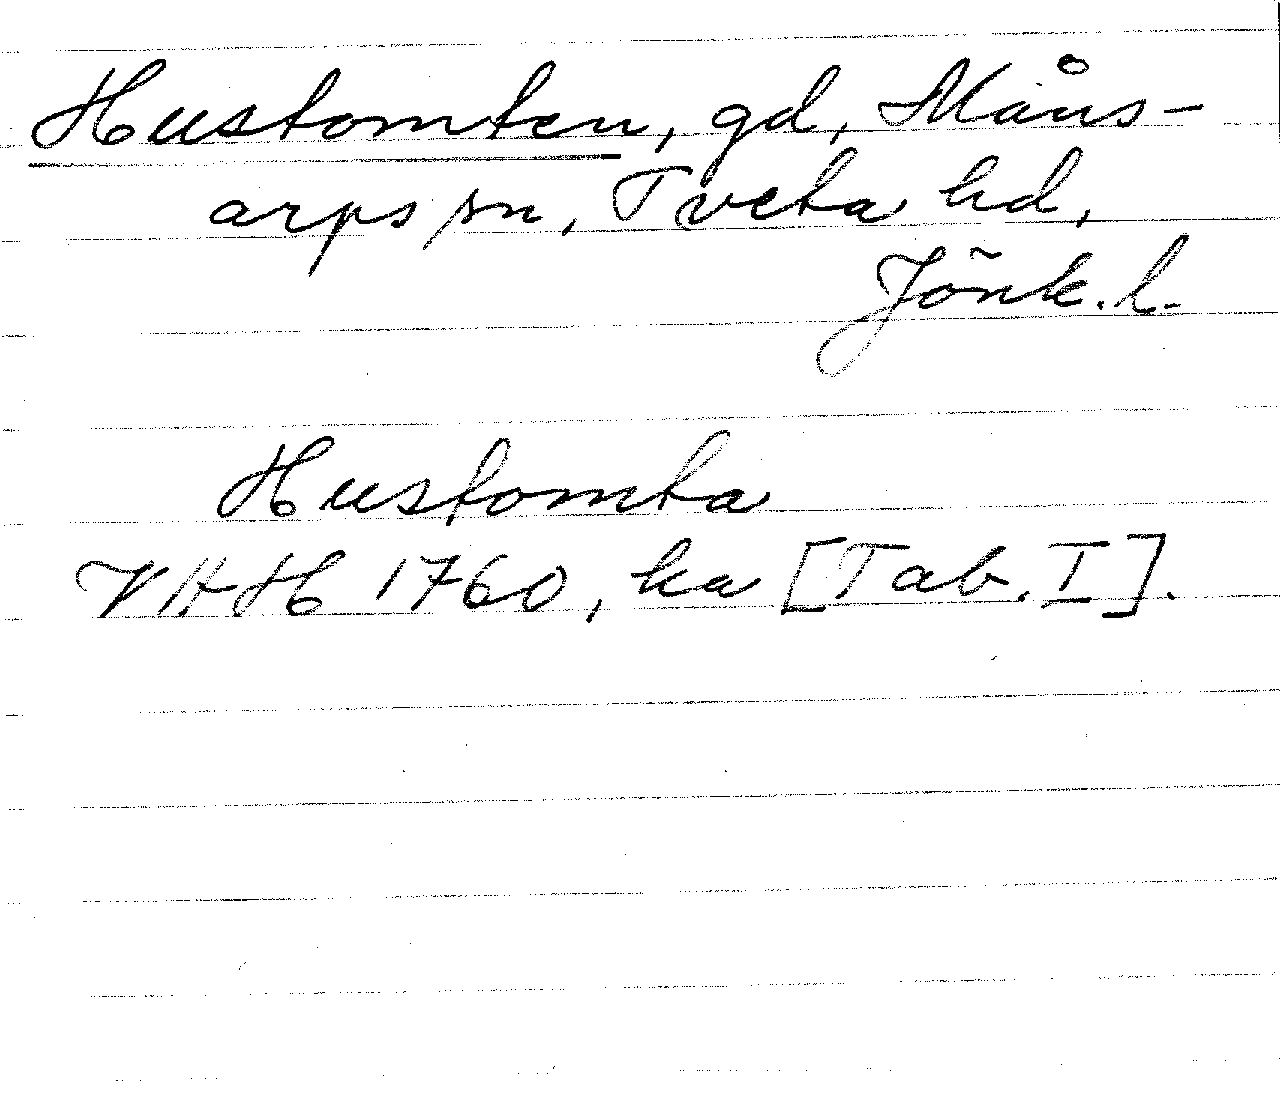 Hustomten, gd, Måns-
arps sn, Tveta hd,
Jönk. l.
Hustomta
VHH 1760, ka [Tab. I].